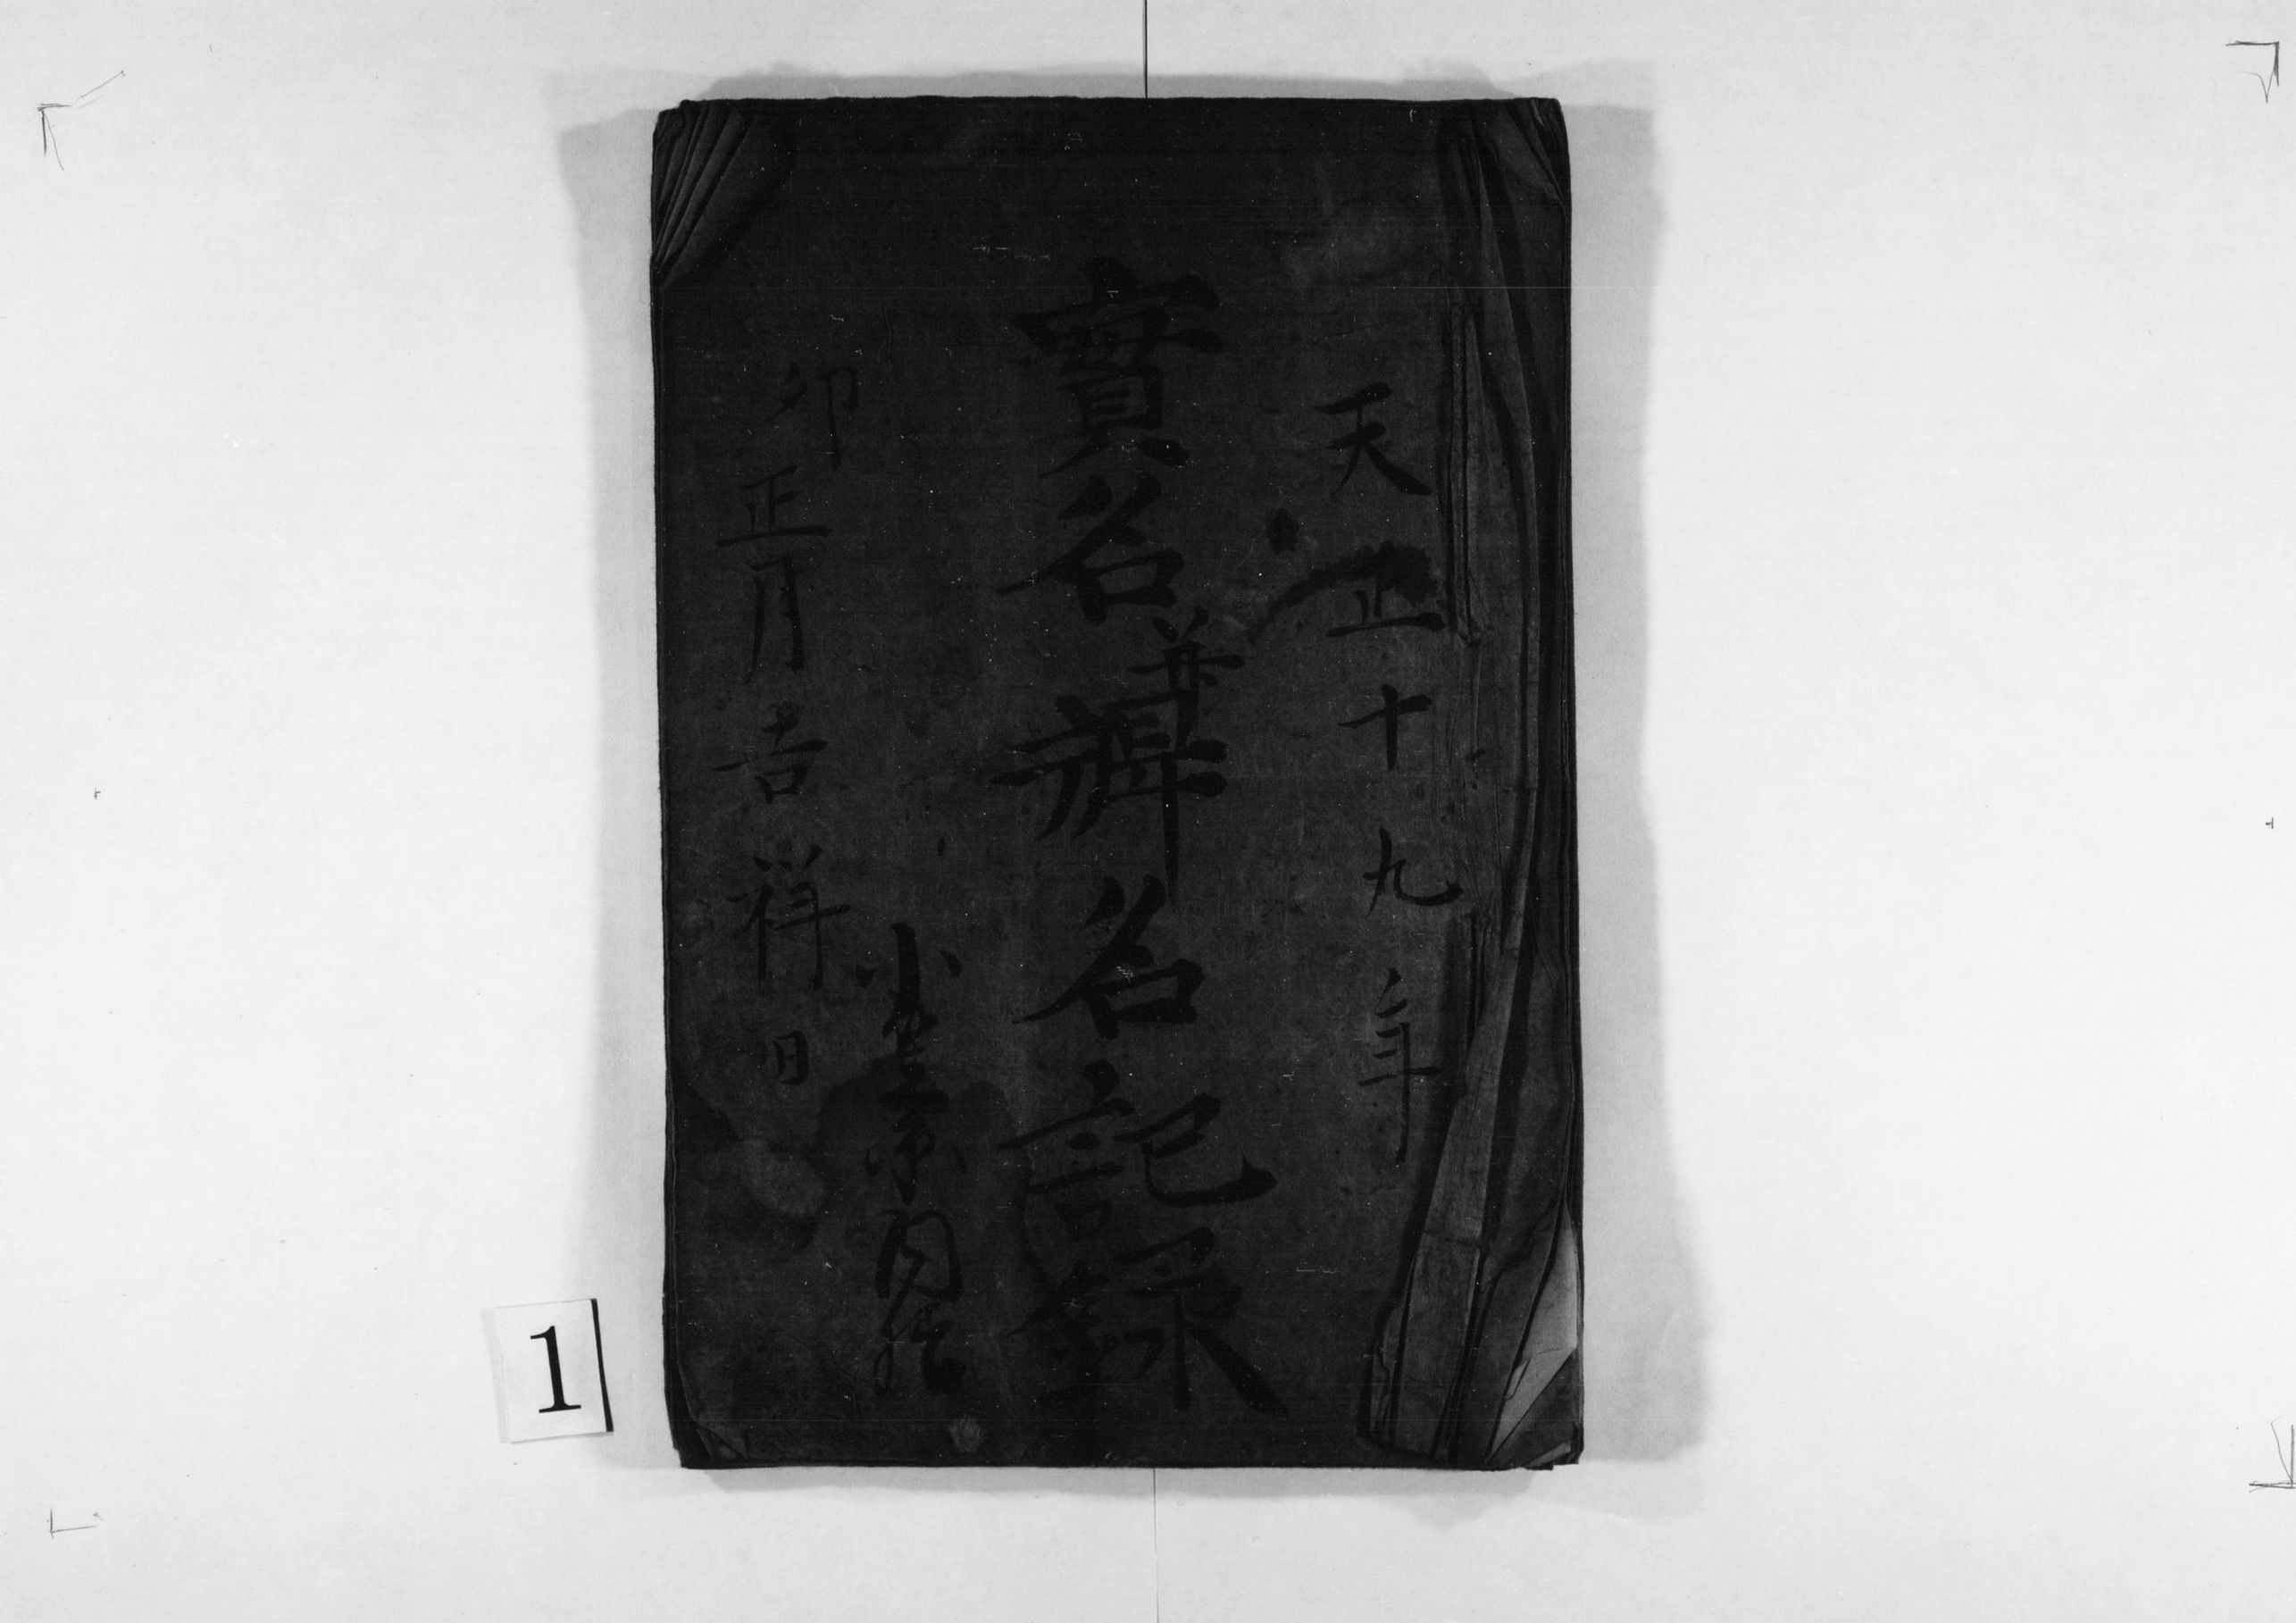 天正十九年
實名并諱名記録
卯正月吉祥日
1